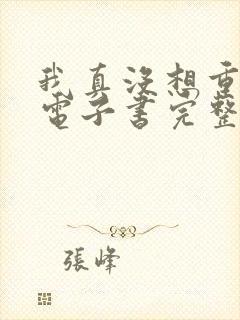 我真沒想重
電子書完整
張峰